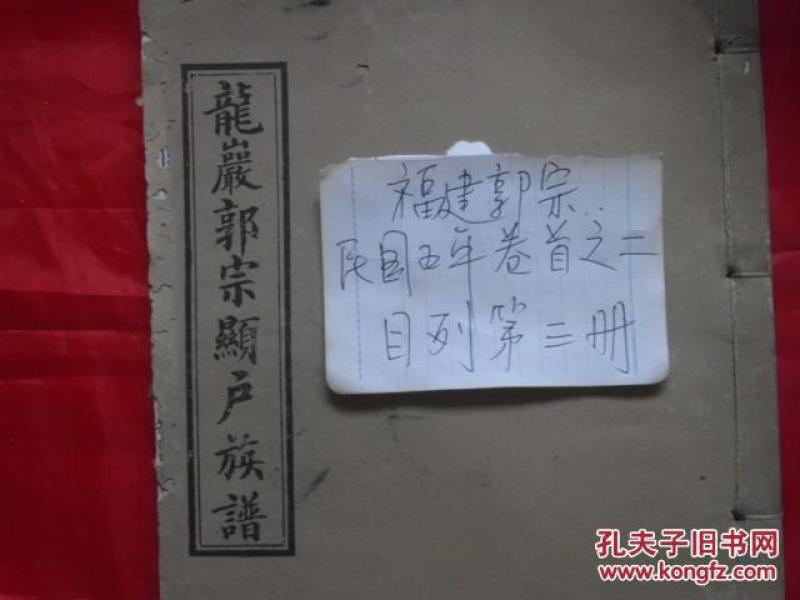 龍巖郭宗顯户族譜
福建郭宗
民国五年卷首之二
目列第三册
孔夫子旧书网
www.kongfz.com